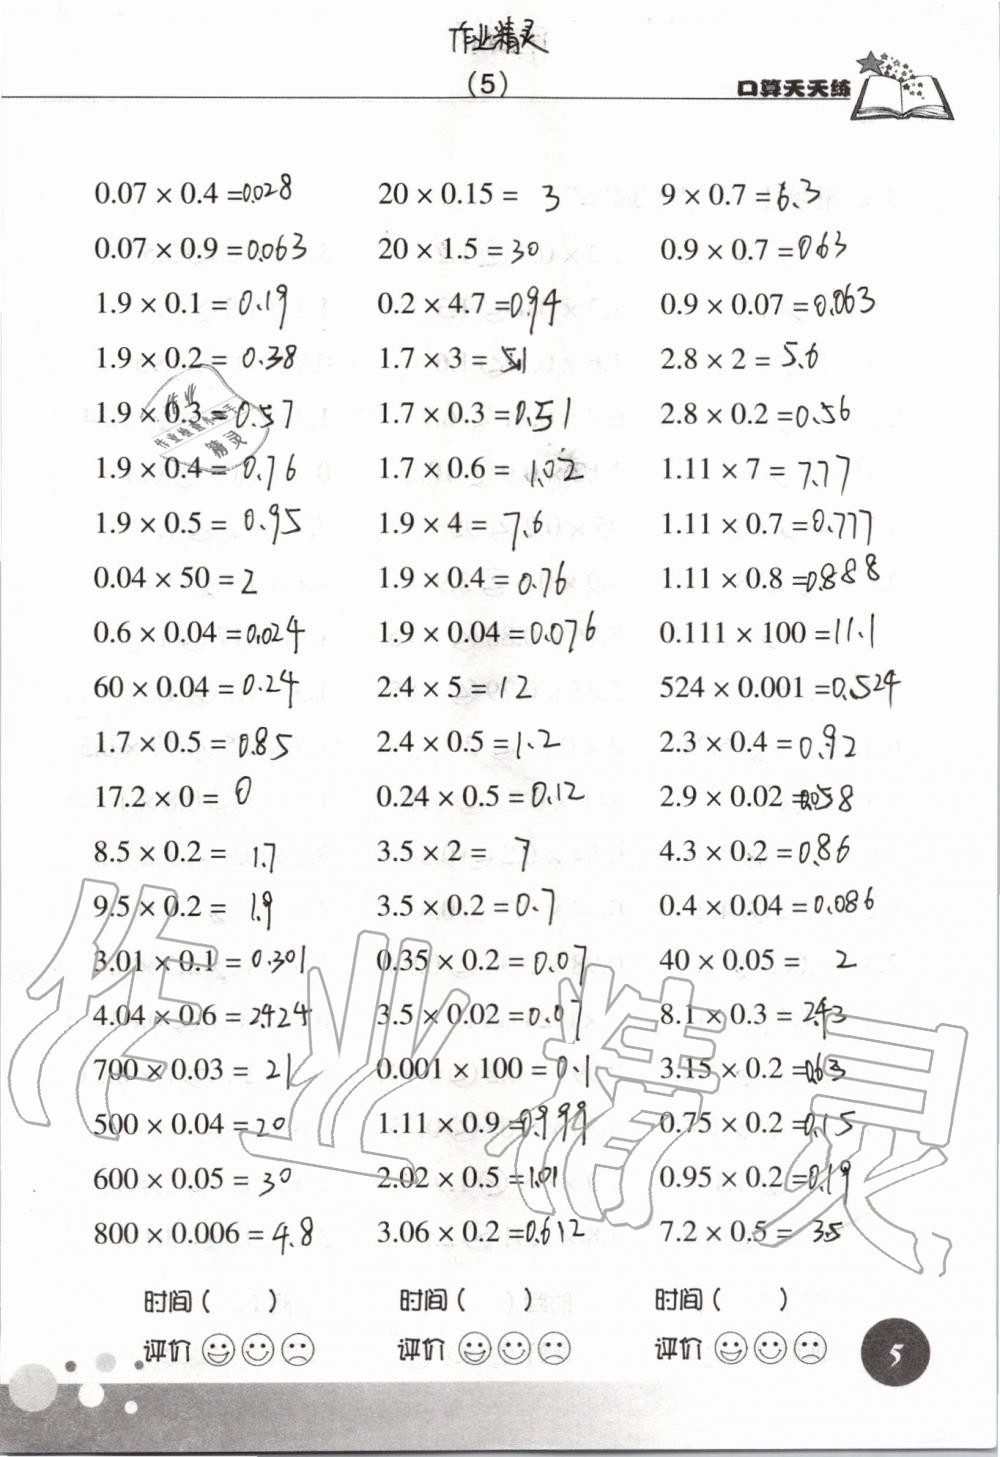 作业精灵
(5)
口算天天练
0.07 × 0.4 =0.028 20 × 0.15 = 3 9 × 0.7 =6.3
0.07 × 0.9 =0.063 20 × 1.5 =30 0.9 × 0.7 =063
1.9 × 0.1 = 0.19 0.2 × 4.7 =094 0.9 × 0.07 =0.063
1.9 × 0.2 = 0.38 1.7 × 3 = 5.1 2.8 × 2 = 5.6
1.9 × 0.3 = 0.57 1.7 × 0.3 =0.51 2.8 × 0.2 =0.56
1.9 × 0.4 = 0.76 1.7 × 0.6 = 1.02 1.11 × 7 = 7.77
1.9 × 0.5 = 0.95 1.9 × 4 = 7.6 1.11 × 0.7 =0.777
0.04 × 50 = 2 1.9 × 0.4 = 0.76 1.11 × 0.8 =0.888
0.6 × 0.04 =0.024 1.9 × 0.04 =0.076 0.111 × 100 =11.1
60 × 0.04 = 0.24 2.4 × 5 =12 524 × 0.001 =0.524
1.7 × 0.5 = 0.85 2.4 × 0.5 =1.2 2.3 × 0.4 =0.92
17.2 × 0 = 0 0.24 × 0.5 = 0.12 2.9 × 0.02 =0.058
8.5 × 0.2 = 1.7 3.5 × 2 = 7 4.3 × 0.2 =0.86
9.5 × 0.2 = 1.9 3.5 × 0.2 =0.7 0.4 × 0.04 =0.086
3.01 × 0.1 = 0.301 0.35 × 0.2 = 0.07 40 × 0.05 = 2
4.04 × 0.6 = 2.424 3.5 × 0.02 =0.07 8.1 × 0.3 = 2.43
700 × 0.03 = 21 0.001 × 100 = 0.1 3.15 × 0.2 =0.63
500 × 0.04 =20 1.11 × 0.9 =0.999 0.75 × 0.2 =0.15
600 × 0.05 = 30 2.02 × 0.5 =1.01 0.95 × 0.2 =0.19
800 × 0.006 = 4.8 3.06 × 0.2 =0.612 7.2 × 0.5 = 3.5
时间 ( ) 时间 ( ) 时间 ( )
评价 评价 评价
5
作业
作业检查小助手
精灵
作业精灵